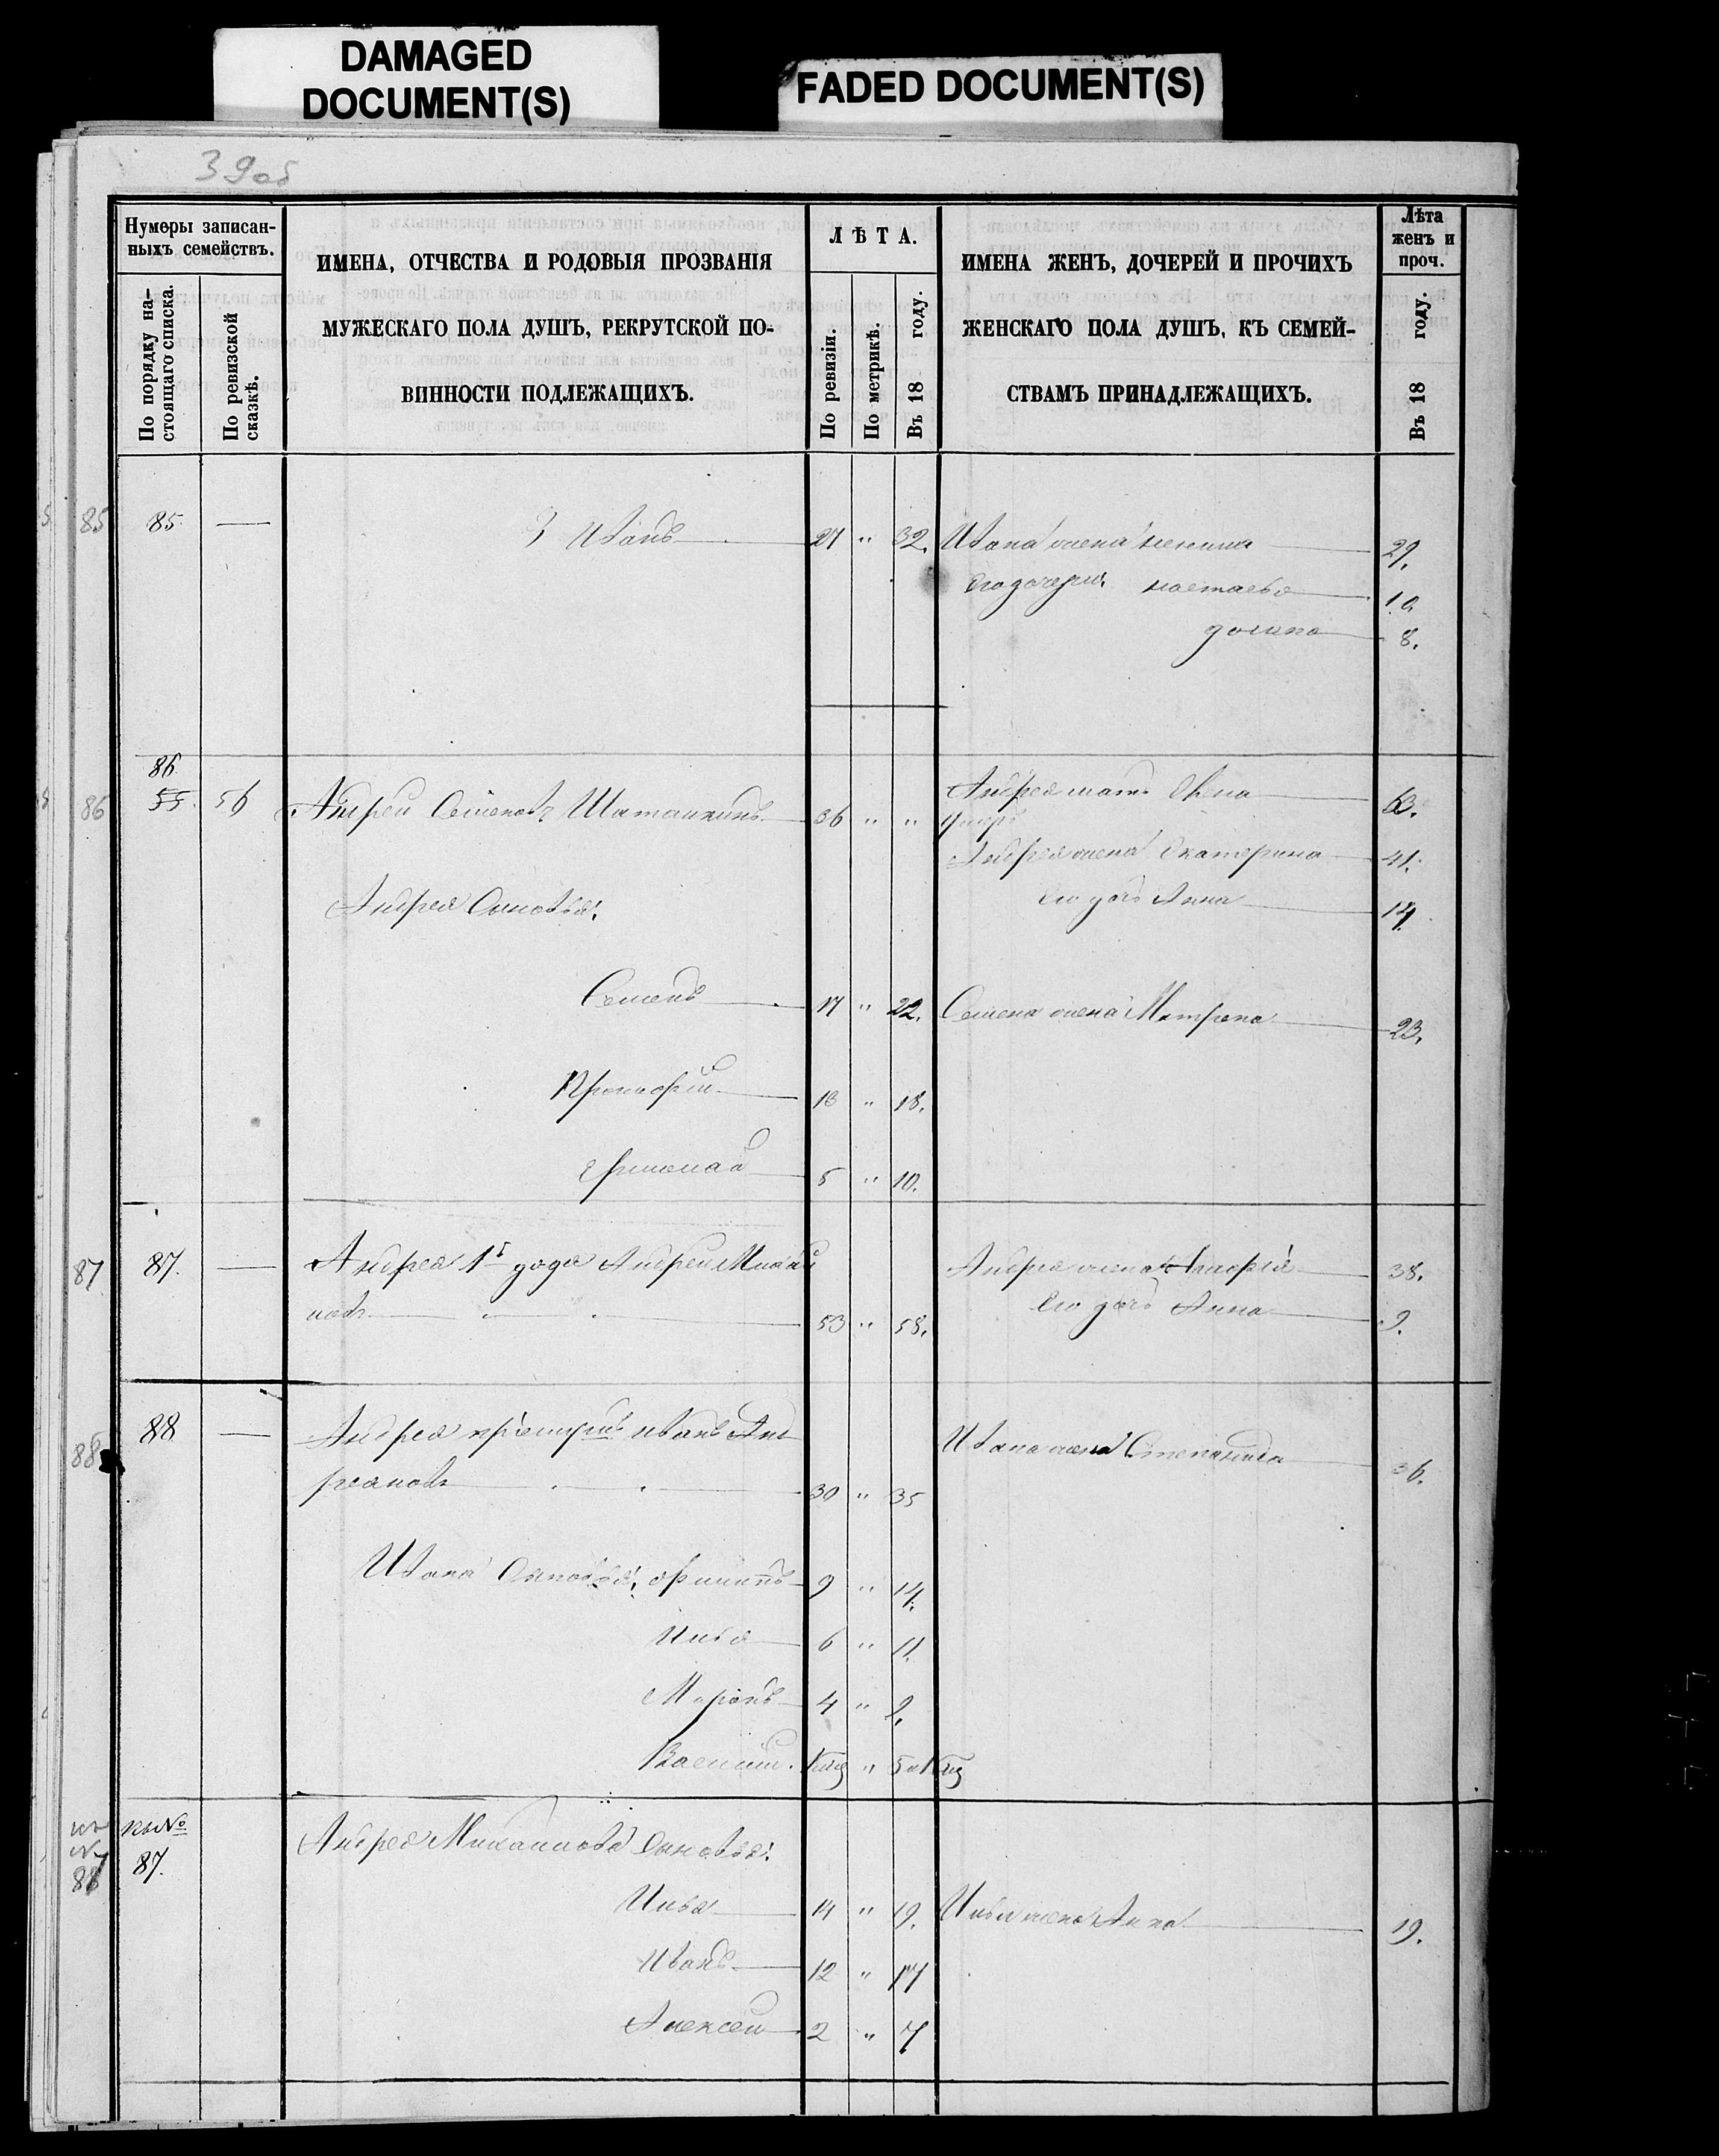 DAMAGED
DOCUMENT(S)
FADED DOCUMENT(S)
39об
Нумеры записан-
ныхъ семействъ.
По порядку на-
стоящаго списка.
По ревизской
сказкѣ.
ИМЕНА, ОТЧЕСТВА И РОДОВЫЯ ПРОЗВАНІЯ
МУЖЕСКАГО ПОЛА ДУШЪ, РЕКРУТСКОЙ ПО-
ВИННОСТИ ПОДЛЕЖАЩИХЪ.
ЛѢТА.
По ревизіи.
По метрикѣ.
Въ 18 году.
ИМЕНА ЖЕНЪ, ДОЧЕРЕЙ И ПРОЧИХЪ
ЖЕНСКАГО ПОЛА ДУШЪ, КЪ СЕМЕЙ-
СТВАМЪ ПРИНАДЛЕЖАЩИХЪ.
Лѣта
женъ и
проч.
Въ 18 году.
85 85 — 3 Иванъ 27 " 32. Ивана жена 29.
Его дочери: 10.
8.
86
86 55 56 Андрей Семеновъ 36 " " Андрея мать 63.
Андрея жена Екатерина 41.
Его дочь Анна 14.
Андрея Сыновья:
Семенъ 17 " 22. Семена жена Матрена 23.
Прокофій 13 " 18.
5 " 10.
87 87. — Андрея 1й дядя Андрей Михай
ловъ 53 " 58. Андрея жена 38.
Его дочь Анна 9.
88 88 — Андрея Иванъ Анд
реяновъ 30 " 35 Ивана жена Степанида 36.
Ивана Сыновья: Филипъ 9 " 14.
Илья 6 " 11.
Миронъ 4 " 9.
Василій. " 5
къ № 87. Андрея Михайлова Сыновья:
Илья 14 " 19. Ильи жена Анна 19.
Иванъ 12 " 17
Алексей 2 " 7